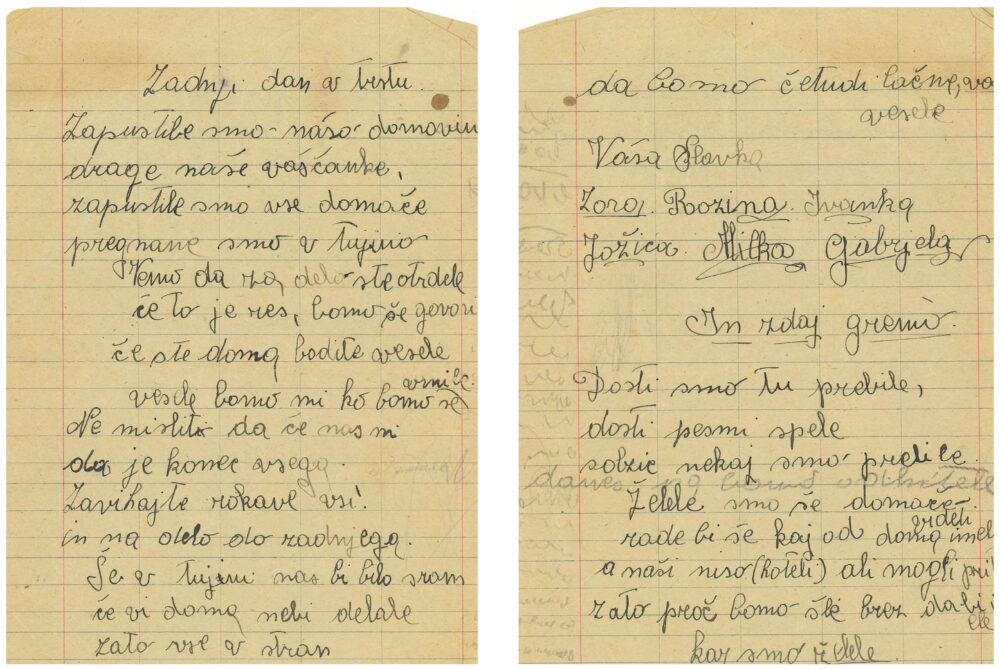 Zadnji dan v trstu.
Zapustile smo nášo domovin
drage naše vaščanke,
zapustile smo vse domače
pregnane smo v tujino
Vemo da za delo ste otrdele
če to je res, bomo še govori
če ste doma bodite vesele
vesele bomo mi ko bomo se vrnile.
Ne mislite da če nas ni
da je konec vsega.
Zavihajte rokave vsi!
in na delo do zadnjega.
Še v tujini nas bi bilo sram
če vi doma nebi delale
zato vse v stran
da bomo četudi lačne,
vesele
Váša Slavka
Zora. Rozina. Ivanka
Jožica. Milka Gabrjela
In zdaj gremo.
Dosti smo tu prebile,
dosti pesmi spele
solzic nekaj smo prelile
danes pa bomo odhitele
Želele smo še domače videti
rade bi še kaj od doma imel
a naši niso (hoteli) ali mogli pri
zato proč bomo šle brez da bi
kar smo ele